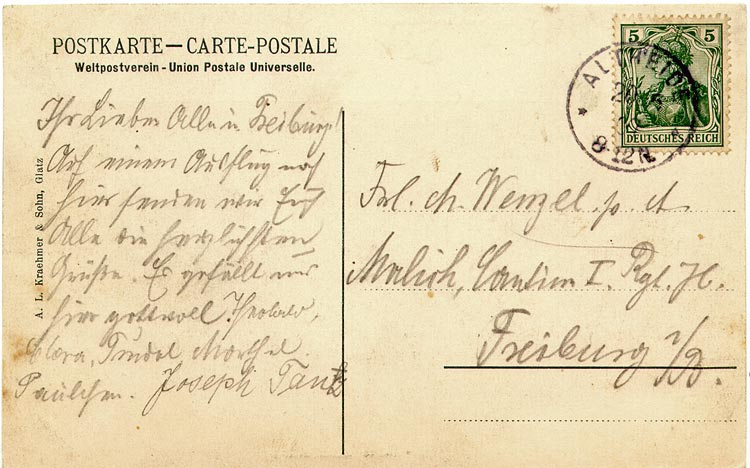 POSTKARTE — CARTE-POSTALE
Weltpostverein - Union Postale Universelle.
5 5
DEUTSCHES REICH
8-12N.
A. L. Kraehmer & Sohn, Glatz
Ihr Lieben Alle in Freiburg!
Auf einem Ausflug nach
hier senden wir Euch
Alle die herzlichsten
Grüße. Es gefällt uns
hier gottvoll. Theobald,
Klara, Trudel, Marthel
Paulchen. Joseph
Frl. M. Wenzel p. A.
Malich, Cantine I. Rgt.
Freiburg i/B.